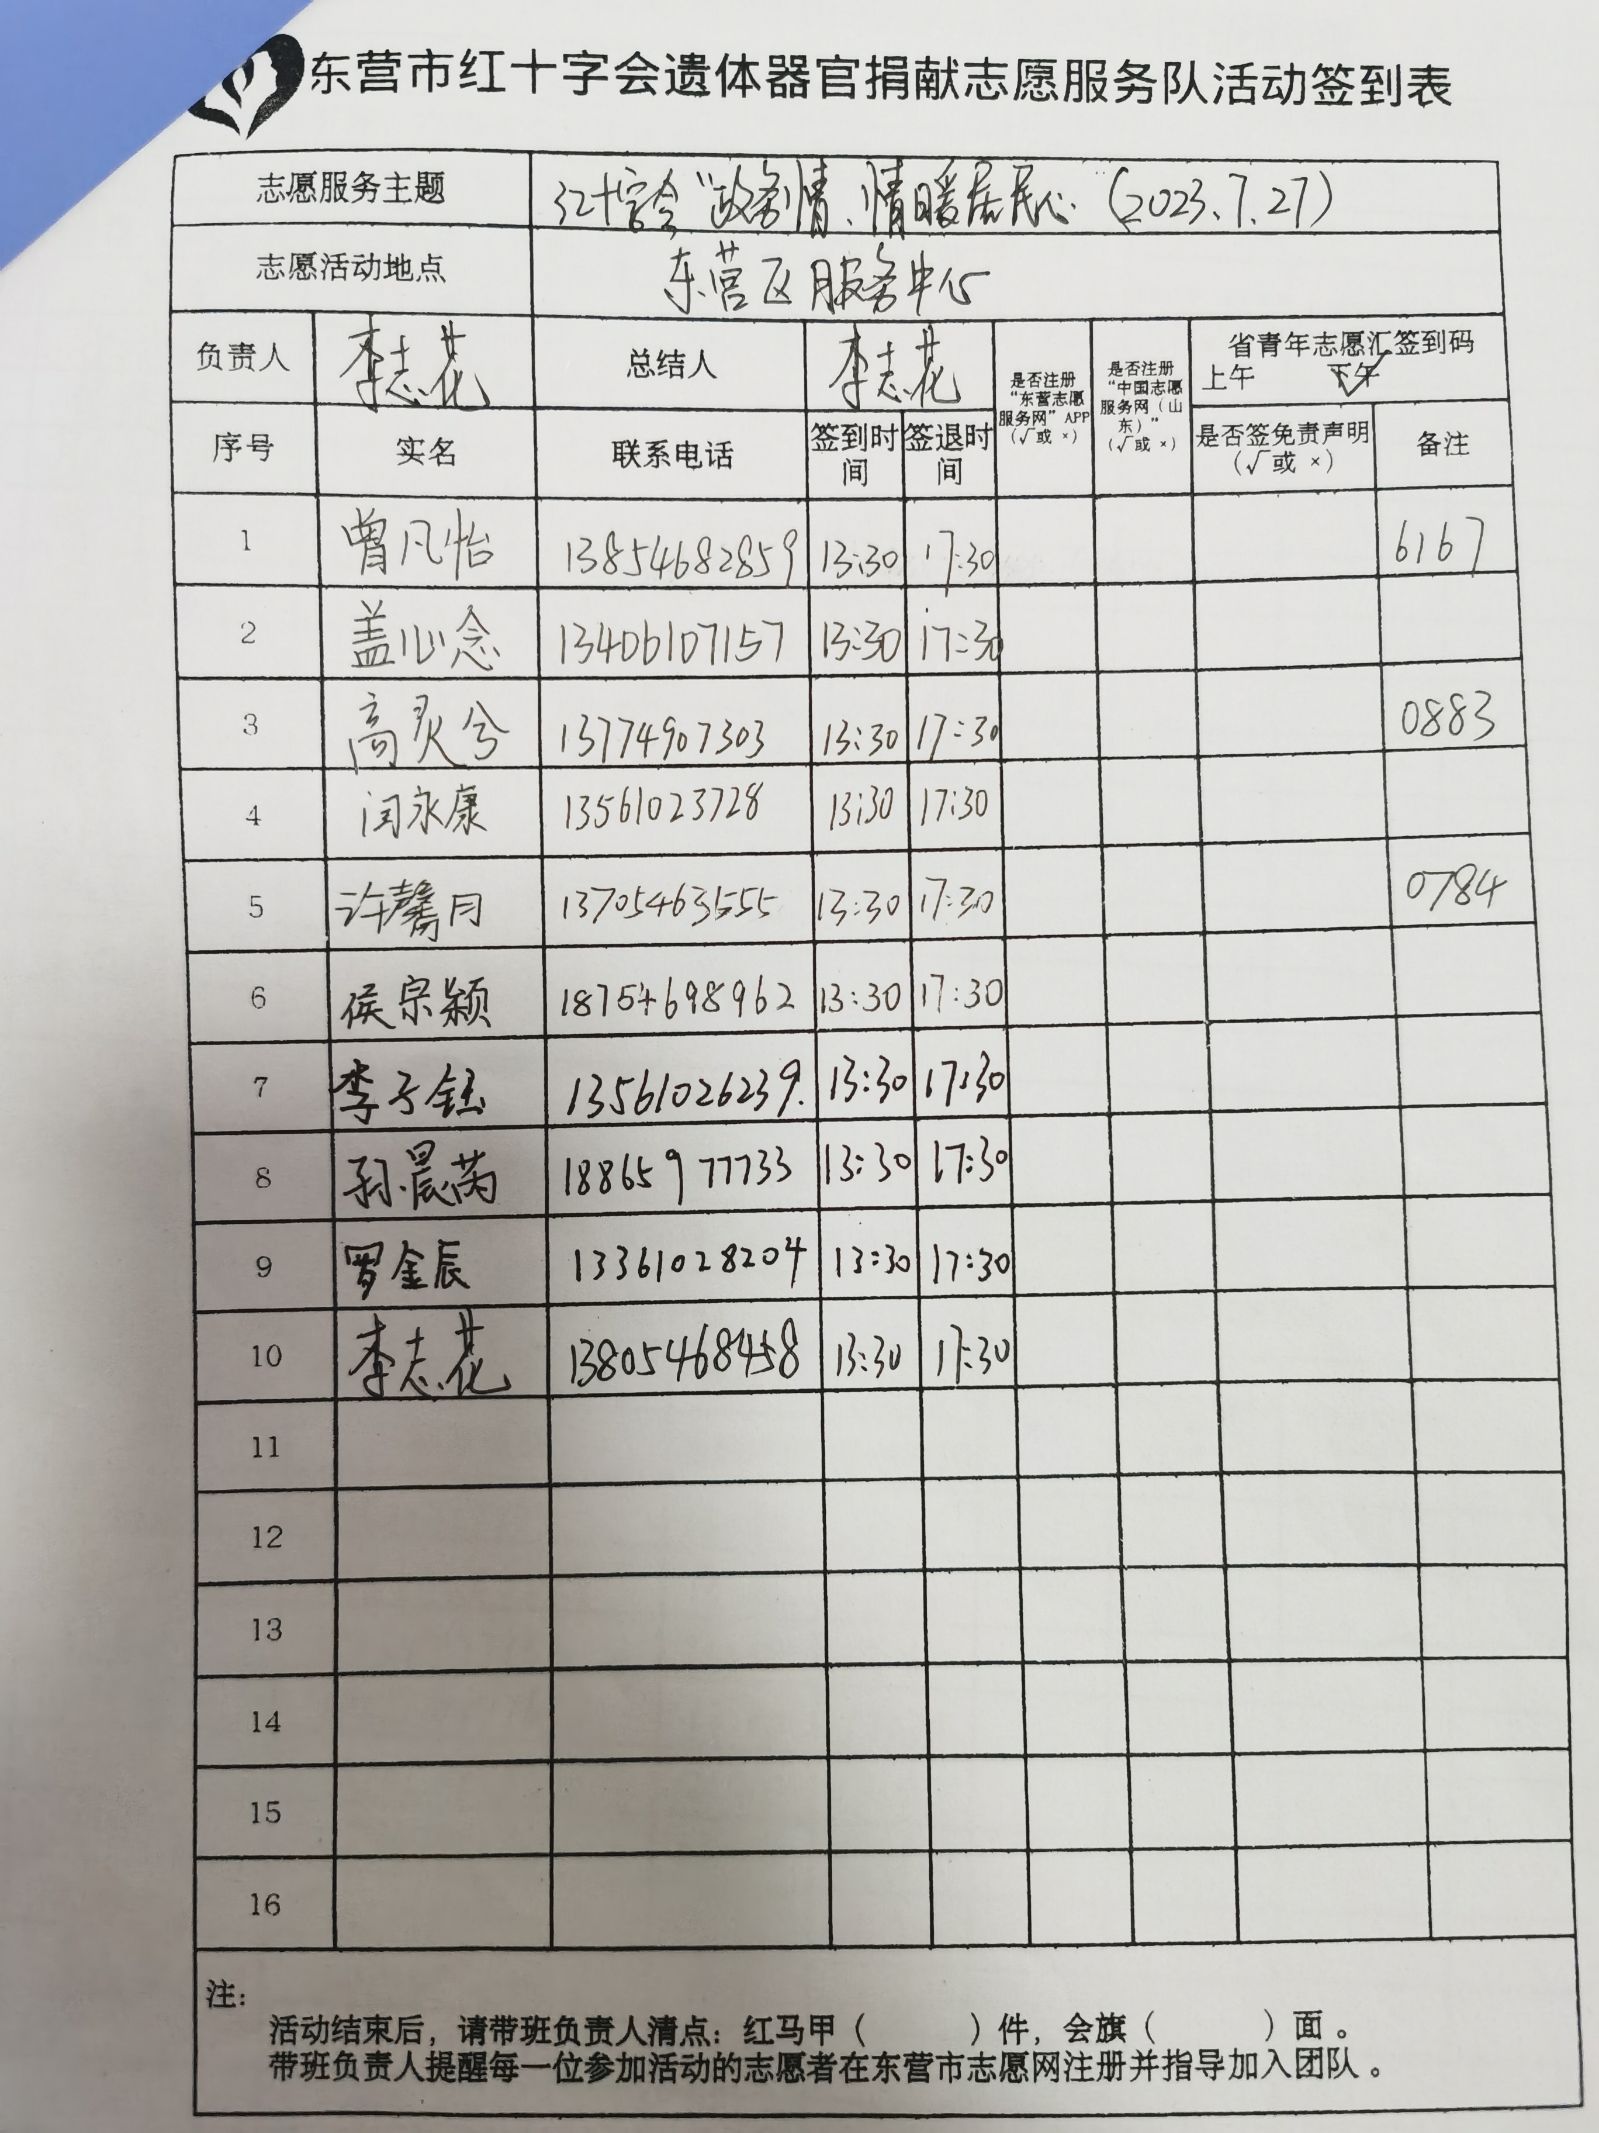 东营市红十字会遗体器官捐献志愿服务队活动签到表
志愿服务主题 红十字会“政务情、情暖居民心 (2023.7.27)
志愿活动地点 东营区服务中心
负责人 李志花 总结人 李志花 是否注册“东营志愿服务网”APP(√或 ×) 是否注册“中国志愿服务网(山东)”(√或 ×) 省青年志愿汇签到码 上午 下午 √
序号 实名 联系电话 签到时间 签退时间 是否签免责声明(√或 ×) 备注
1 曾凡怡 13854682859 13:30 17:30 6167
2 盖心念 13406107157 13:30 17:30
3 高灵兮 13774907303 13:30 17:30 0883
4 闫永康 13561023728 13:30 17:30
5 许馨月 13705463555 13:30 17:30 0784
6 侯宗颖 18754698962 13:30 17:30
7 李子钰 13561026239. 13:30 17:30
8 孙晨芮 18865977733 13:30 17:30
9 罗金辰 13361028204 13:30 17:30
10 李志花 13805468458 13:30 17:30
11
12
13
14
15
16
注:
活动结束后,请带班负责人清点:红马甲( )件,会旗( )面。
带班负责人提醒每一位参加活动的志愿者在东营市志愿网注册并指导加入团队。